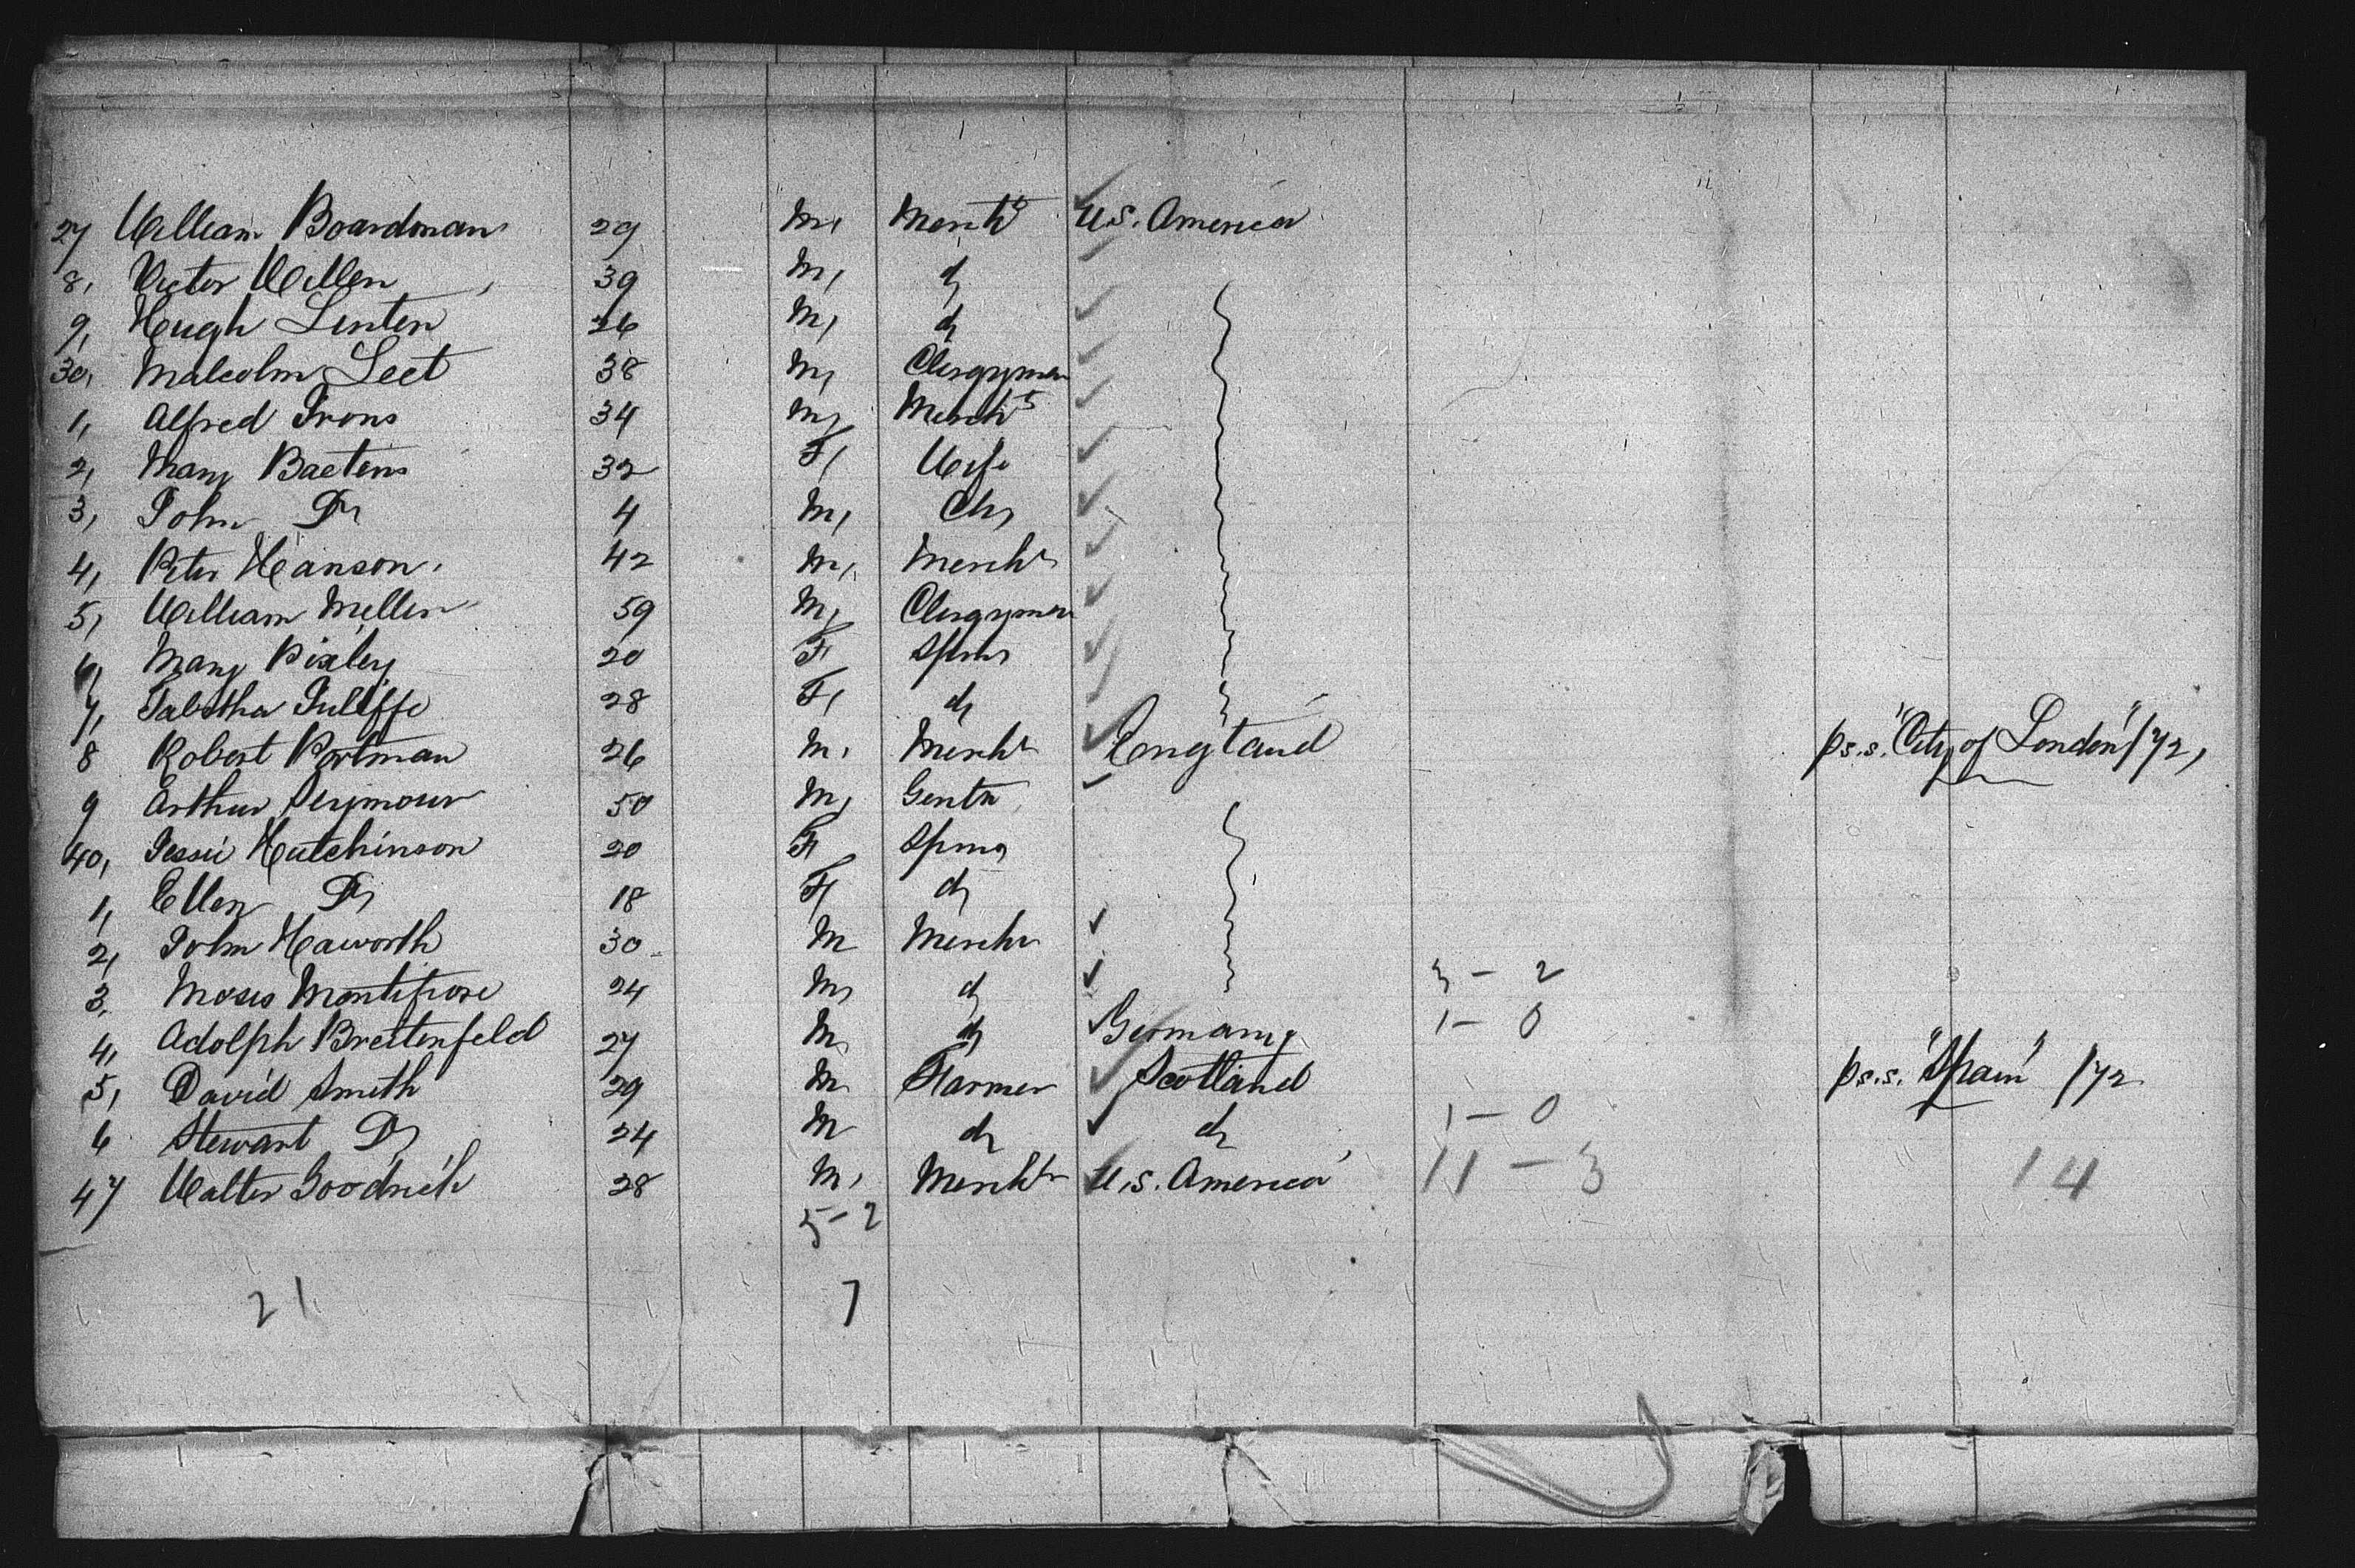 27 William Boardman 29 M, Mercht U.S. America
8, Victor Willen 39 M, do
9, Hugh Linten 26 M, do
30, Malcolm Leet 38 M, Clergyman
1, Alfred Irons 34 M, Mercht
2, Mary Baetens 32 F, Wife
3, John Do 4 M, Ch,
4, Peter Hanson. 42 M, Mercht
5, William Miller 59 M, Clergyman
6, Mary Bixley 20 F, Spinr
7, Tabitha 28 F, do
8 Robert Portman 26 M. Mercht England ps.s. "City of London" /72,
9 Arthur Seymour 50 M, Gentn
40, Jessie Hutchinson 20 F, Spinr
1, Ellen Do 18 F, do
2, John Haworth 30 M Mercht
3, Moses Montifiore 24 M, do 3 - 2
4, Adolph Breitenfeld 27 M, do Germany 1 - 0
5, David Smith 29 M Farmer Scotland ps.s. "Spain" /72
6 Stewart Do 24 M do do 1 - 0
47 Walter Goodrich 28 M, Mercht U.S. America 11 - 3 14
5 - 2
21 7